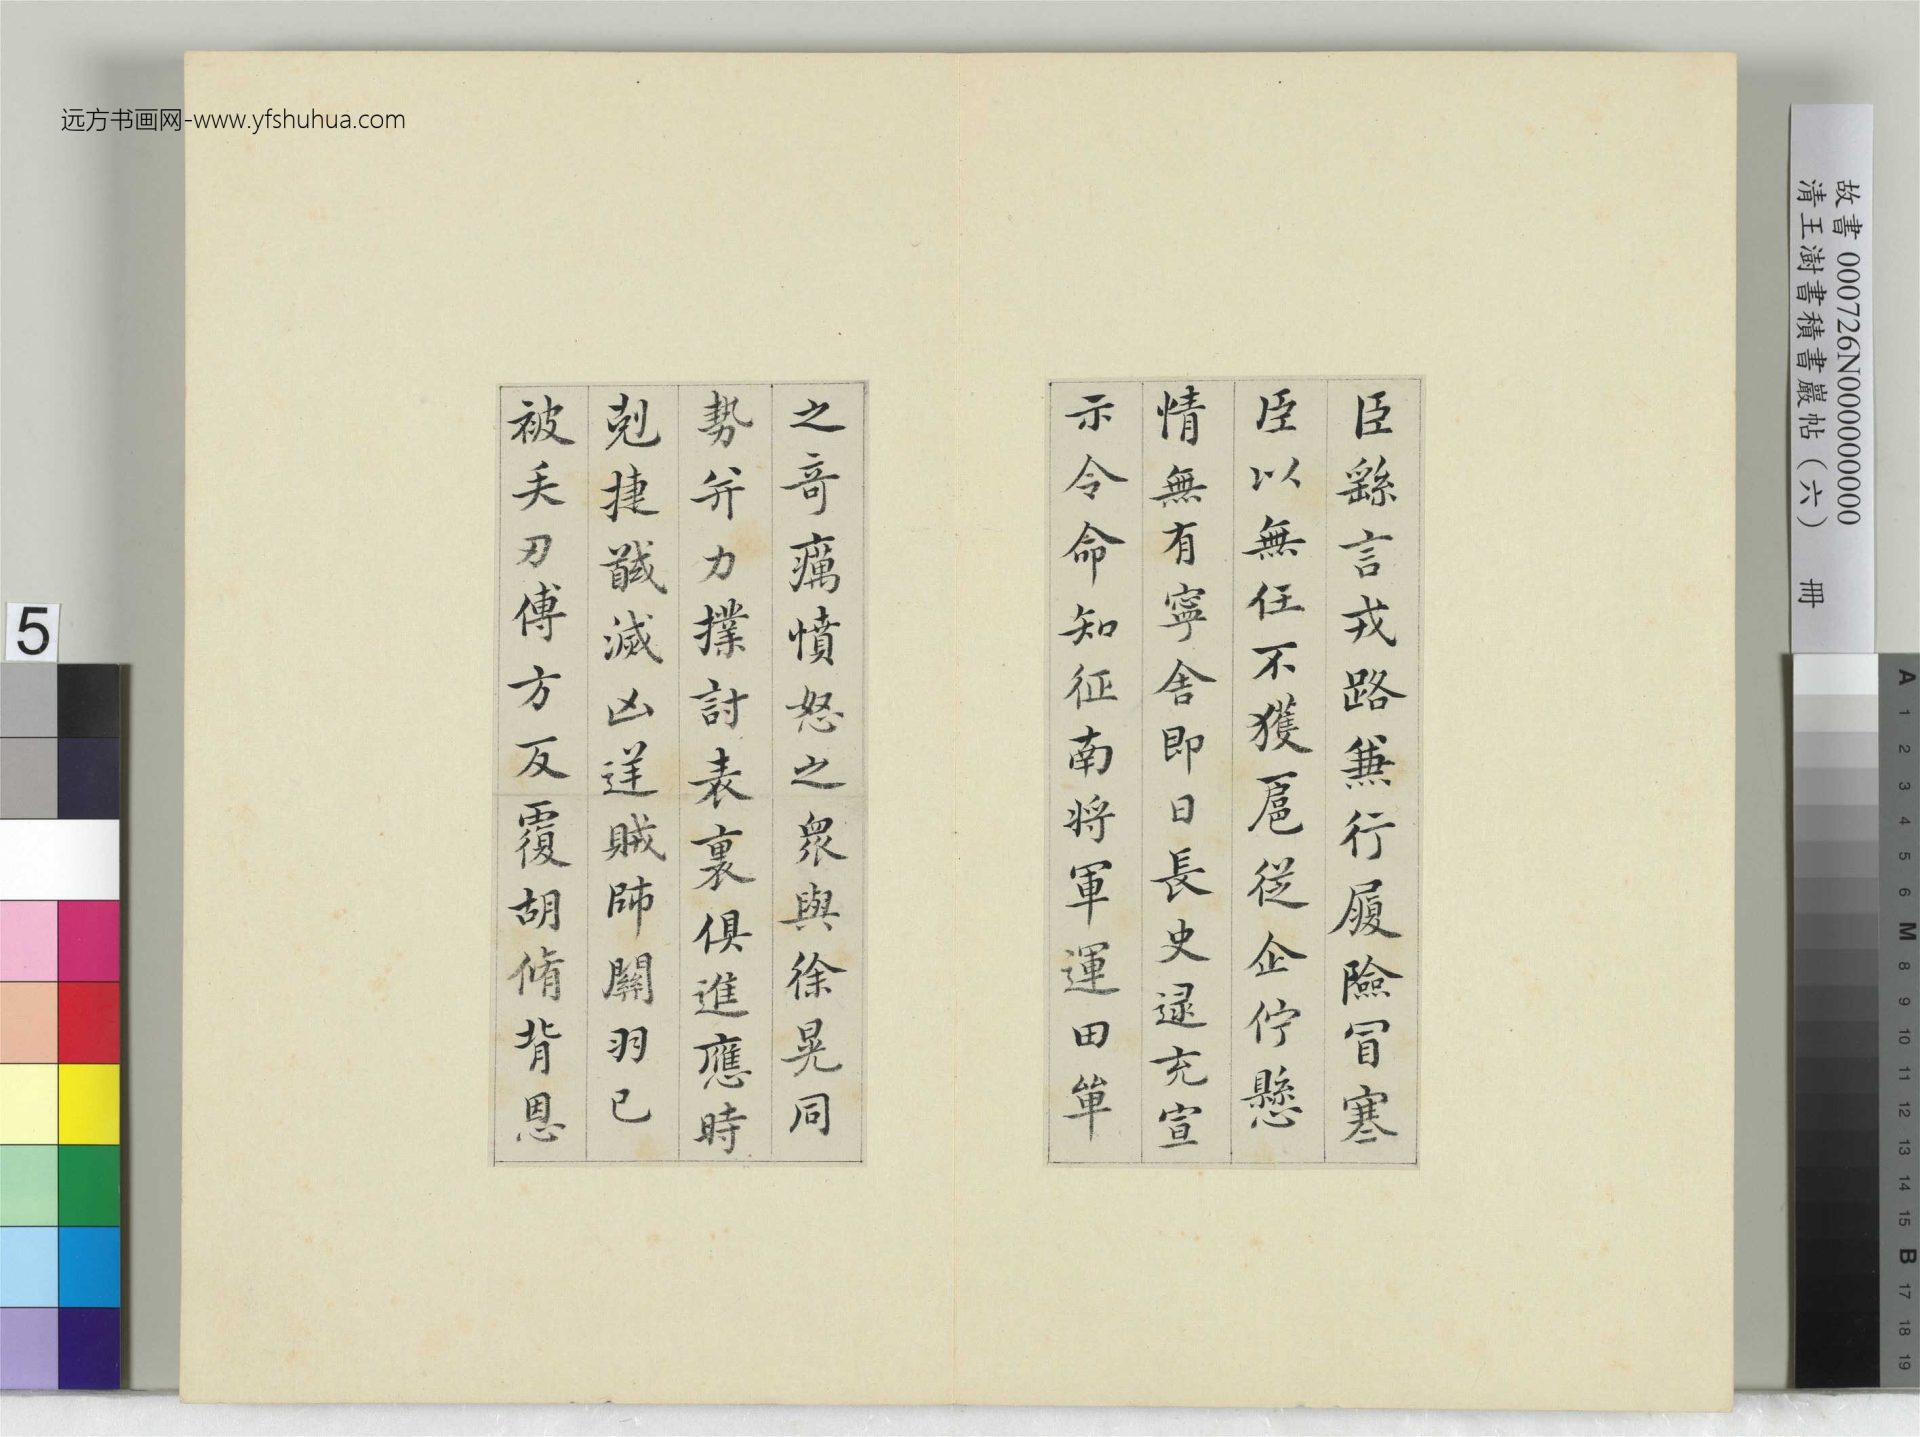 臣繇言戎路兼行履險冒寒
臣以無任不獲扈從企佇懸
情無有寧舍即日長史逯充宣
示令命知征南將軍運田單
之奇癘憤怒之眾與徐晃同
勢并力撲討表裏俱進應時
剋捷馘滅凶逆賊帥關羽已
被手刃傅方反覆胡脩背恩
远方书画网-www.yfshuhua.com
故書 000726N000000000
清王澍書積書巖帖（六） 冊
5
A
1
2
3
4
5
6
M
8
9
10
11
12
13
14
15
B
17
18
19